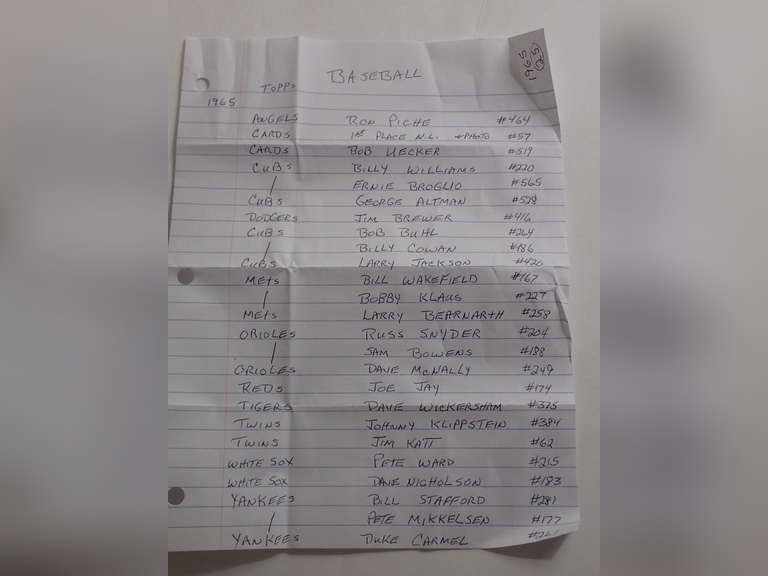 1965 25
BASEBALL
TOPPS
1965
ANGELS RON PICHE #464
CARDS 1st PLACE N.L. #57
CARDS BOB UECKER #519
CUBS BILLY WILLIAMS #220
ERNIE BROGLIO #565
CUBS GEORGE ALTMAN
DODGERS JIM BREWER #416
CUBS BOB BUHL #264
BILLY COWAN #186
CUBS LARRY JACKSON #420
METS BILL WAKEFIELD #167
BOBBY KLAUS #227
METS LARRY BEARNARTH #258
ORIOLES RUSS SNYDER #204
SAM BOWENS #188
ORIOLES DAVE McNALLY #249
REDS JOE JAY #174
TIGERS DAVE WICKERSHAM #375
TWINS JOHNNY KLIPPSTEIN #384
TWINS JIM KATT #62
WHITE SOX PETE WARD #215
WHITE SOX DAVE NICHOLSON #183
YANKEES BILL STAFFORD #281
PETE MIKKELSEN #177
YANKEES DUKE CARMEL